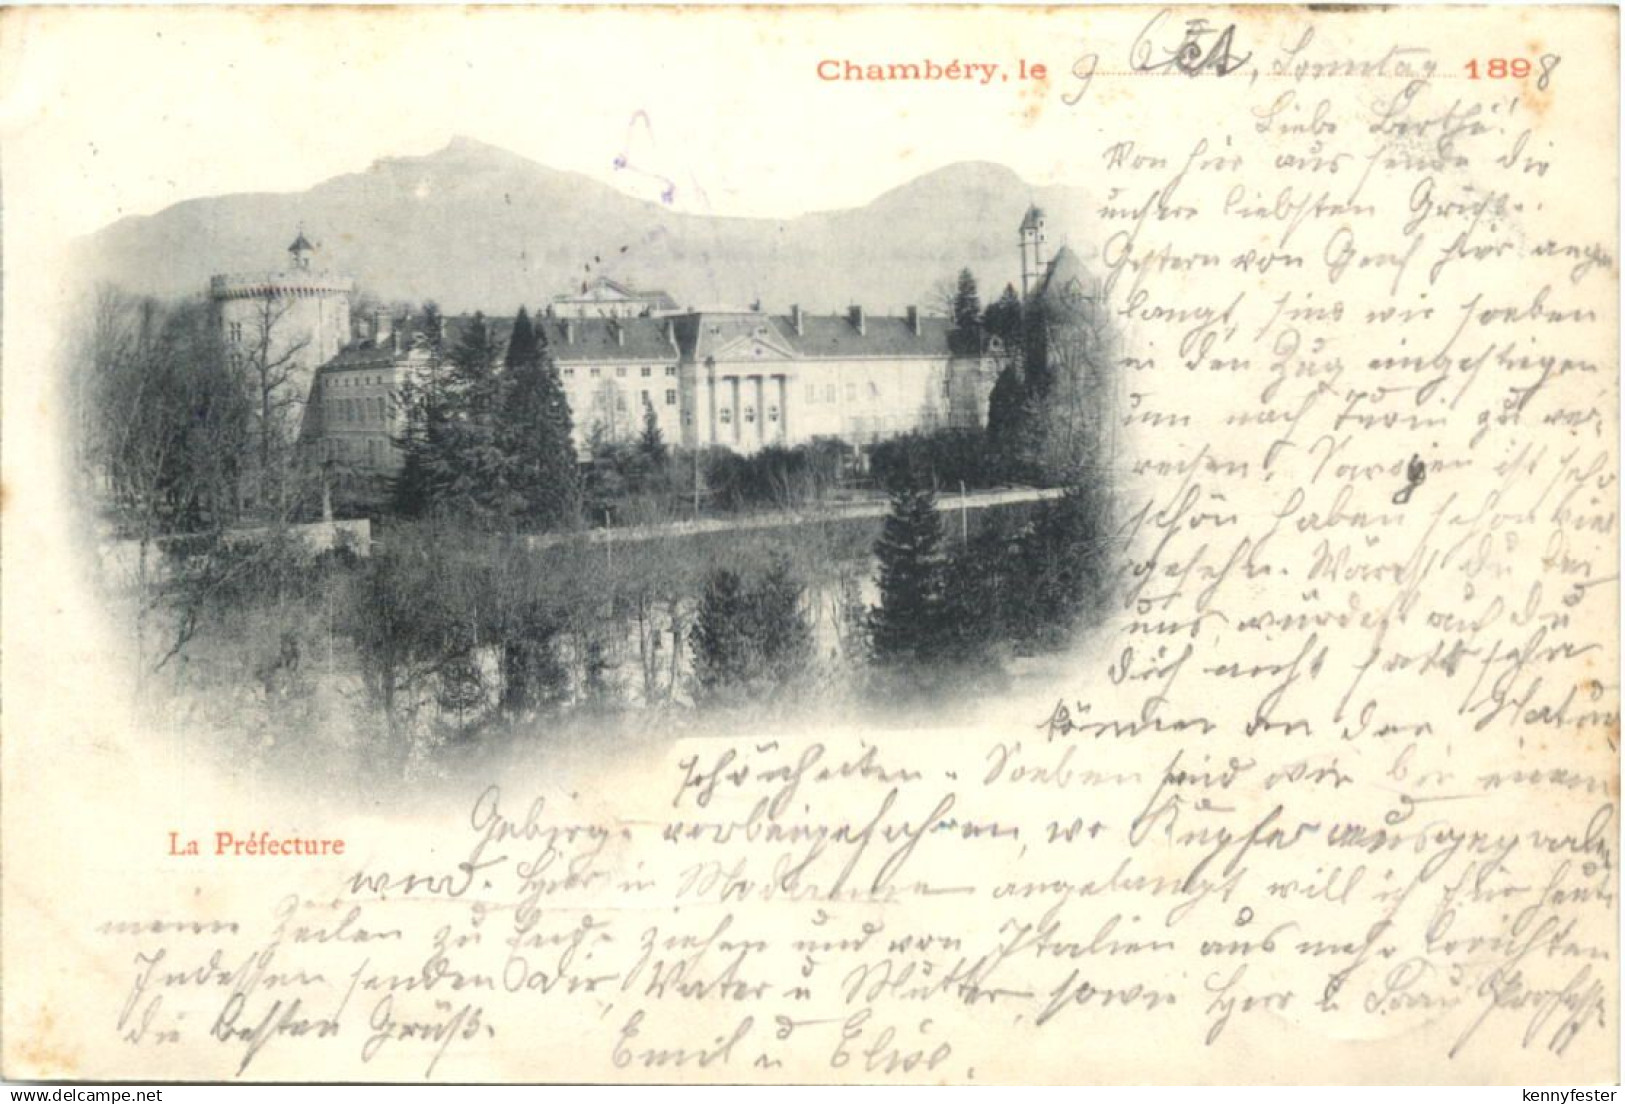 Chambéry, le 9 Oct., Sonntag 1898
Liebe Bertha!
Von hier aus sende dir
unsere liebsten Grüße.
Gestern von Genf hier ange
langt, sind wir soeben
in den Zug eingestiegen
um nach Turin zu ver-
reisen. Savoyen ist sehr
schön haben schon viel
gesehen. Wärest du bei
uns, würdest auch du
dich nicht satt sehn
können an den Natur
schönheiten. Soeben sind wir bei einem
Gebirge vorbeigefahren, wo Kupfer ausgegraben
wird. Hier in Modane angelangt will ich für heute
meine Zeilen zu Ende ziehen und von Italien aus mehr berichten
Indessen senden Dir, Vater u Mutter, sowie Herr u Frau Professor
die besten Grüße.
Emil u Elise.
La Préfecture
kennyfester